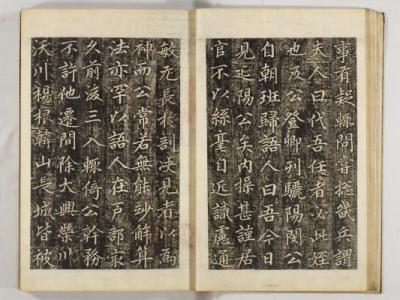 事有疑輒問普捴畿兵謂
夫人曰代吾任者必此姪
也及公登卿列驪陽閔公
自朝班歸語人曰吾今日
見延陽公矣內操甚謹居
官不以絲毫自近識慮通
敏尤長於訓決見者以爲
神而公常若無能妙解算
法亦罕以語人在戶部最
久前後三入輒倚公幹務
不許他遷間除大興榮川
沃川楊根韓山長城皆破